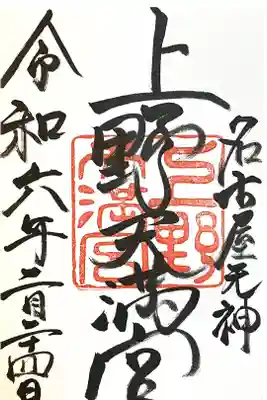 名古屋天神
上野天満宮
令和六年二月二十四日
上野天満宮